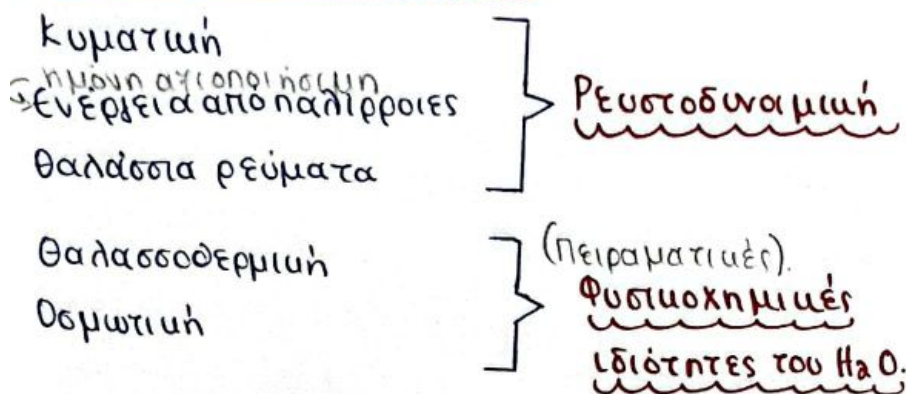 Κυματική
η μόνη αξιοποιήσιμη
Ενέργεια από παλίρροιες
Θαλάσσια ρεύματα
Ρευστοδυναμική
Θαλασσοθερμική
Οσμωτική
(Πειραματικές).
Φυσικοχημικές
ιδιότητες του H2O.